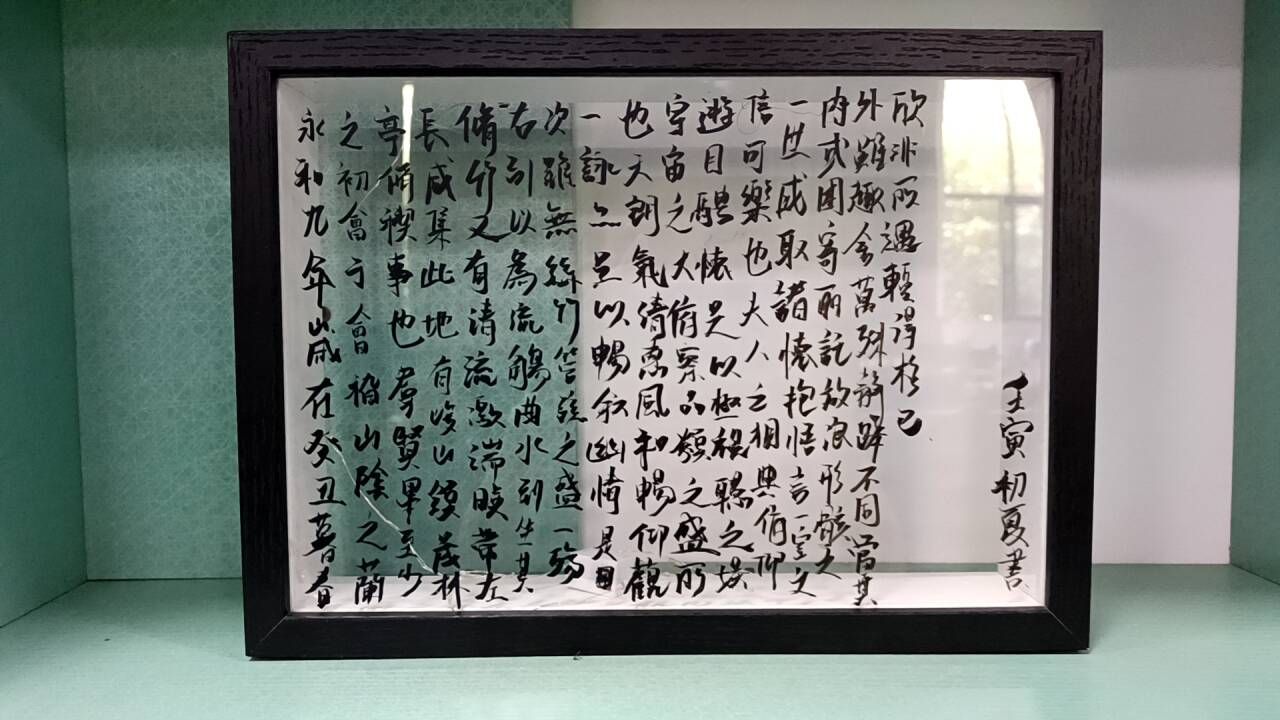 永和九年歲在癸丑暮春
之初會于會稽山陰之蘭
亭脩禊事也羣賢畢至少
長咸集此地有峻山領茂林
脩竹又有清流激湍暎帶左
右引以為流觴曲水列坐其
次雖無絲竹管絃之盛一觴
一詠亦足以暢叙幽情是日
也天朗氣清惠風和暢仰觀
宇宙之大俯察品類之盛所
遊目騁懷足以極視聽之娛
信可樂也夫人之相與俯仰
一世或取諸懷抱悟言一室之
内或因寄所託放浪形骸之
外雖趣舍萬殊静躁不同當其
欣於所遇輕得於己
壬寅初夏書